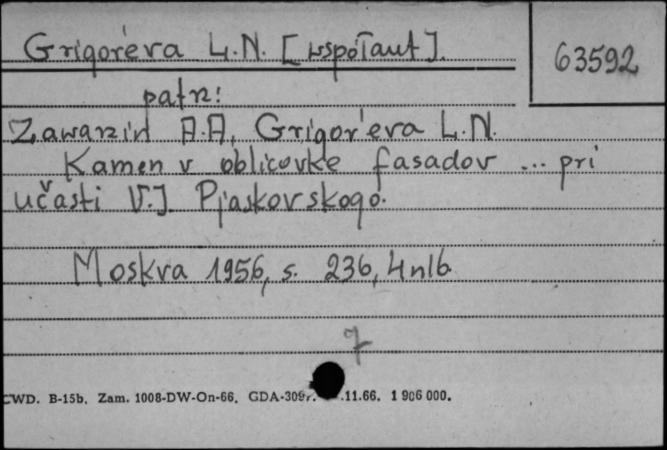 Grigor'eva L.N. [współaut].
63592
patrz:
Zawarzin A.A, Grigor'eva L.N.
Kamen v oblicovke fasadov ... pri
učasti V.J. Pjaskovskogo.
Moskva 1956, s. 236, 4 nlb
7
CWD. B-15b. Zam. 1008-DW-On-66. GDA-309 .11.66. 1 906 000.